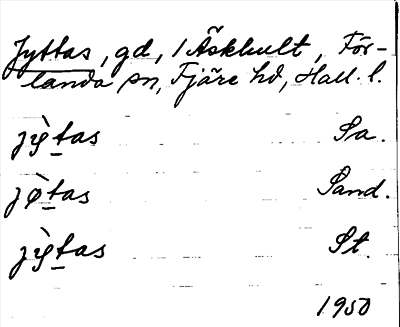 Jyttas, gd, 1 Äskhult, För-
landa sn, Fjäre hd, Hall. l.
jỳtas Sa.
jø̀tas Sand.
jỳtas St.
1950